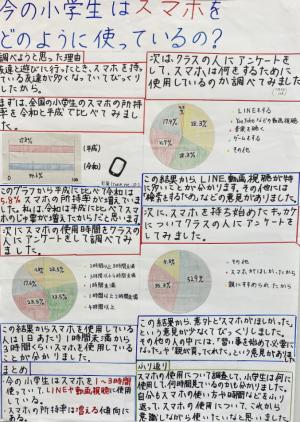 今の小学生はスマホを
どのように使っているの?
調べようと思った理由
友達と遊びに行ったとき、スマホを持っ
ている友達が多くなっていてびっくり
したから。
まずは、全国の小学生のスマホの所持
率を令和と平成で比べてみまし
た。
(平成)
(令和)
このグラフから平成に比べて令和は
5.8%スマホの所持率が増えていま
した。私は、令和は平成に比べてスマホ
の必要が増えたからだと思いました。
次にスマホの使用時間をクラスの
人にアンケートをして調べてみ
ました。
この結果からスマホを使用している
人は1日あたり1時間未満から
3時間くらいスマホを使用している
ことが分かりました。
まとめ
・今の小学生はスマホを1~3時間
使っていて、LINEや動画視聴に使用
している。
・スマホの所持率は増える傾向に
ある。
次は、クラスの人にアンケートを
して、スマホは何をするために
使用しているのか調べてみま
した。
LINEをする
YouTubeなどの動画視聴
音楽を聴く
ゲームをする
その他
この結果から、LINE、動画視聴が特
に多いことが分かります。その他には
「検索をするため」などの意見がありました。
次に、スマホを持ち始めたキッカケ
についてクラスの人にアンケートを
してみました。
その他
スマホがほしかったから
親にすすめられたから
52.9%
この結果から、意外と「スマホがほしかった。」
という意見が少なくてびっくりしました。
その他の人の中には、「習い事を始めて必要に
なった」や「親が買ってくれた」という意見がありました。
ふり返り
スマホの使用について調査して、小学生は何に
使用して、何時間見ているのかも分かりました。
自分もスマホの使い方や時間などをふり
返って、スマホの使用について、これから
意識しながら使いたいなと思いました。